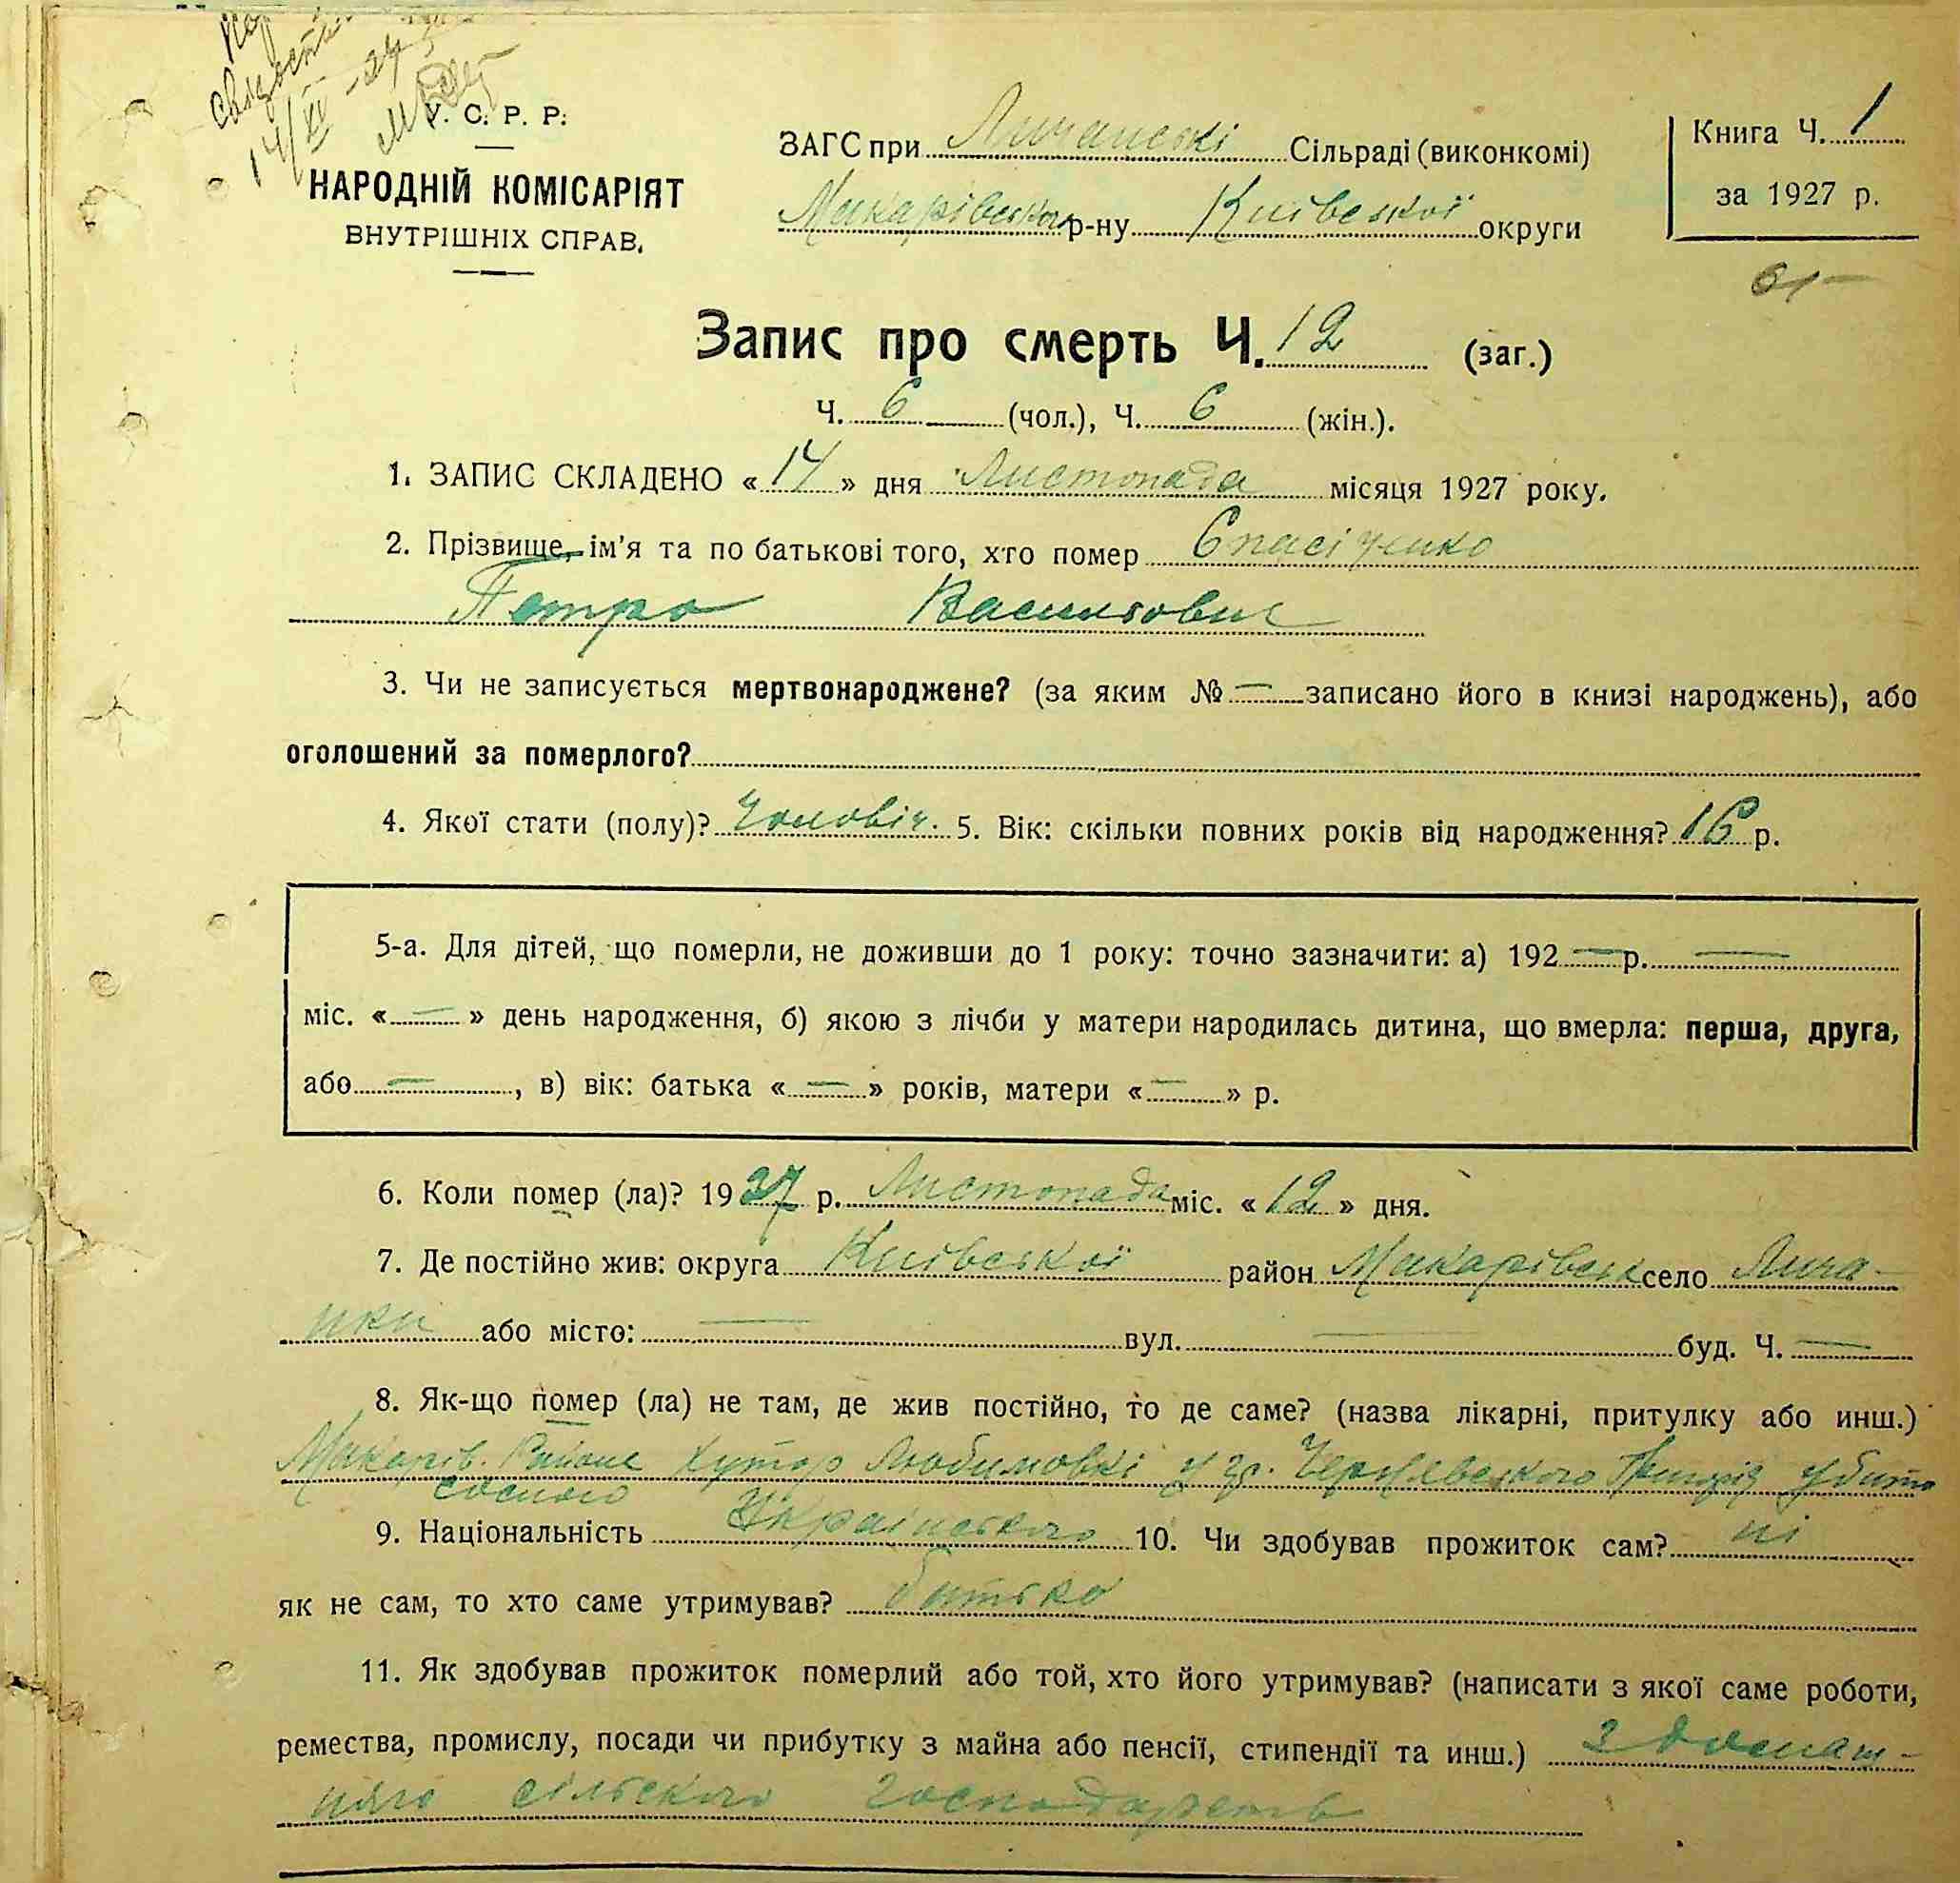 свідоцтв
14/XI-27
У. С. Р. Р.
НАРОДНІЙ КОМІСАРІЯТ
ВНУТРІШНІХ СПРАВ.
ЗАГС при Личанські Сільраді (виконкомі)
Макарівського р-ну Київської округи
Книга Ч. 1
за 1927 р.
Запис про смерть Ч. 12 (заг.)
Ч. 6 (чол.), Ч. 6 (жін.).
1. ЗАПИС СКЛАДЕНО « 14 » дня Листопада місяця 1927 року.
2. Прізвище, ім'я та по батькові того, хто помер Спасіченко
Петро Васильович
3. Чи не записується мертвонароджене? (за яким № — записано його в книзі народжень), або
оголошений за померлого?
4. Якої стати (полу)? Чоловіч. 5. Вік: скільки повних років від народження? 16 р.
5-а. Для дітей, що померли, не доживши до 1 року: точно зазначити: а) 192 — р. —
міс. « — » день народження, б) якою з лічби у матери народилась дитина, що вмерла: перша, друга,
або — , в) вік: батька « — » років, матери « — » р.
6. Коли помер (ла)? 1927 р. Листопада міс. « 12 » дня.
7. Де постійно жив: округа Київської район Макарівськ село Лича-
нки або місто: — вул. — буд. Ч. —
8. Як-що помер (ла) не там, де жив постійно, то де саме? (назва лікарні, притулку або инш.)
Макарів. Района хутор Любимовкі у гр. Чернявського Григорія убито
сосною
9. Національність Українського 10. Чи здобував прожиток сам? ні
як не сам, то хто саме утримував? батько
11. Як здобував прожиток померлий або той, хто його утримував? (написати з якої саме роботи,
ремества, промислу, посади чи прибутку з майна або пенсії, стипендії та инш.) з домаш-
няго сільского господарств